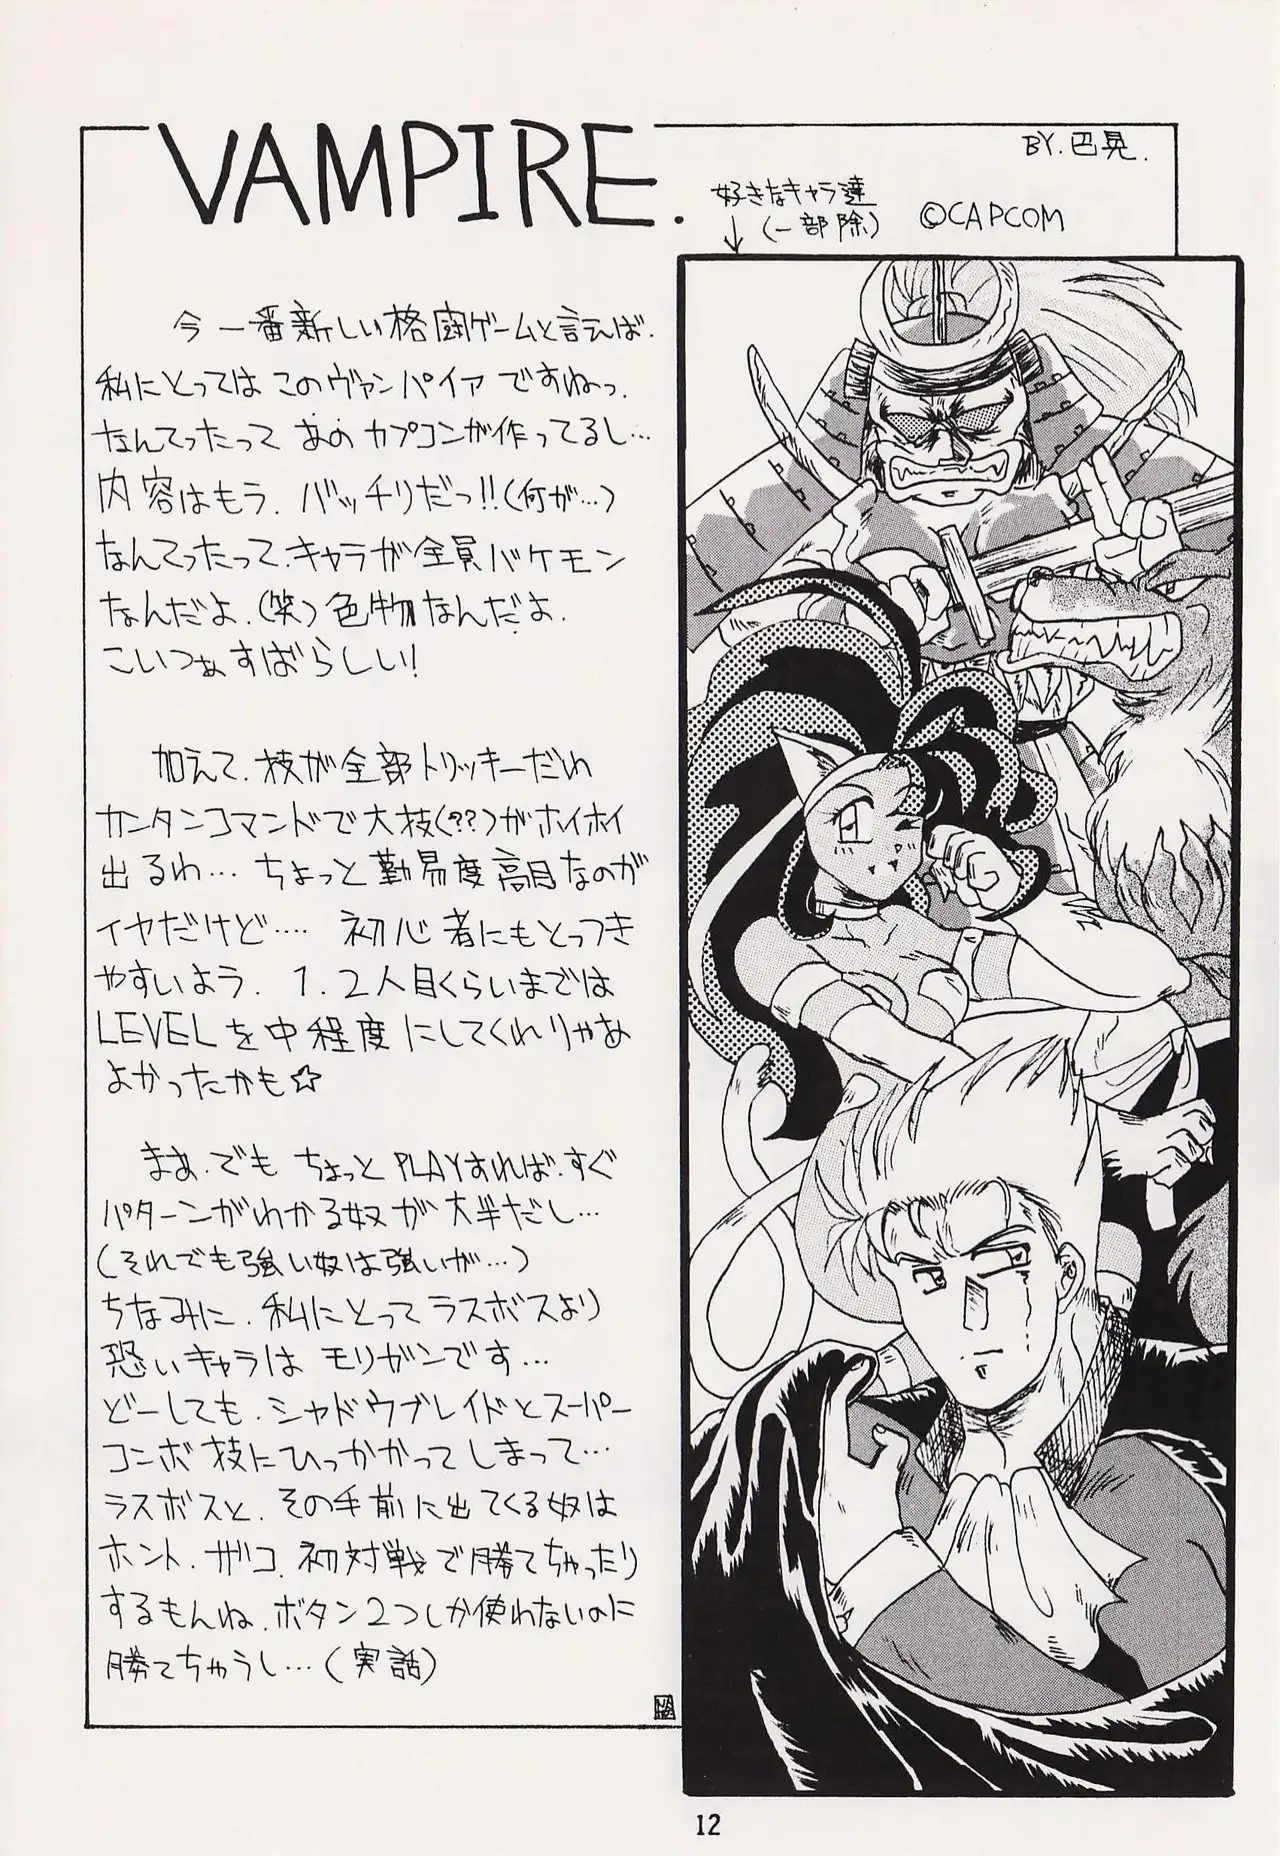 VAMPIRE.
BY.巴晃.
好きなキャラ達
(一部除)
©CAPCOM
今一番新しい格闘ゲームと言えば.
私にとっては このヴァンパイア ですねっ.
なんてったって あの カプコンが作ってるし…
内容はもう. バッチリだっ!!(何が…)
なんてったって.キャラが全員バケモン
なんだよ.(笑)色物なんだよ.
こいつぁすばらしい!
加えて.技が全部トリッキーだわ
カンタンコマンドで大技(??)がホイホイ
出るわ… ちょっと難易度高目なのが
イヤだけど‥‥ 初心者にもとっつき
やすいよう. 1.2人目くらいまでは
LEVELを中程度にしてくれりゃあ
よかったかも☆
まあ.でも ちょっとPLAYすれば.すぐ
パターンがわかる奴が大半だし…
(それでも強い奴は強いが…)
ちなみに.私にとってラスボスより
恐いキャラは モリガンです…
どーしても.シャドウブレイドとスーパー
コンボ技にひっかかってしまって…
ラスボスと.その手前に出てくる奴は
ホント.ザコ.初対戦で勝てちゃったり
するもんね.ボタン2つしか使わないのに
勝てちゃうし…(実話)
12